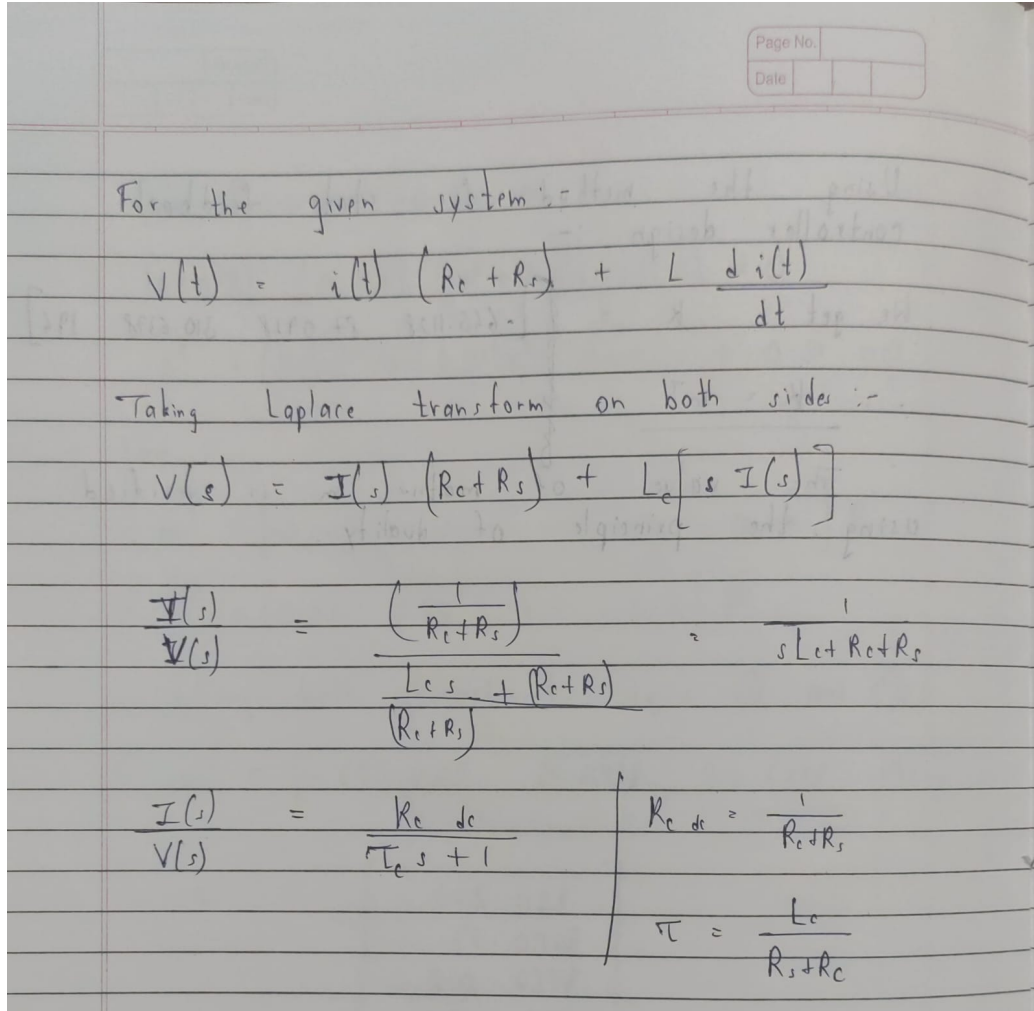 Page No.
Date
For the given system :-
V(t) = i(t) (Rc + Rs) + L d i(t) / dt
Taking Laplace transform on both sides :-
V(s) = I(s) (Rc + Rs) + Lc [s I(s)]
I(s) / V(s) = (1 / (Rc + Rs)) / (Lc s / (Rc + Rs) + (Rc + Rs)) = 1 / (s Lc + Rc + Rs)
I(s) / V(s) = Kc dc / (τc s + 1) | Kc dc = 1 / (Rc + Rs)
τ = Lc / (Rs + Rc)